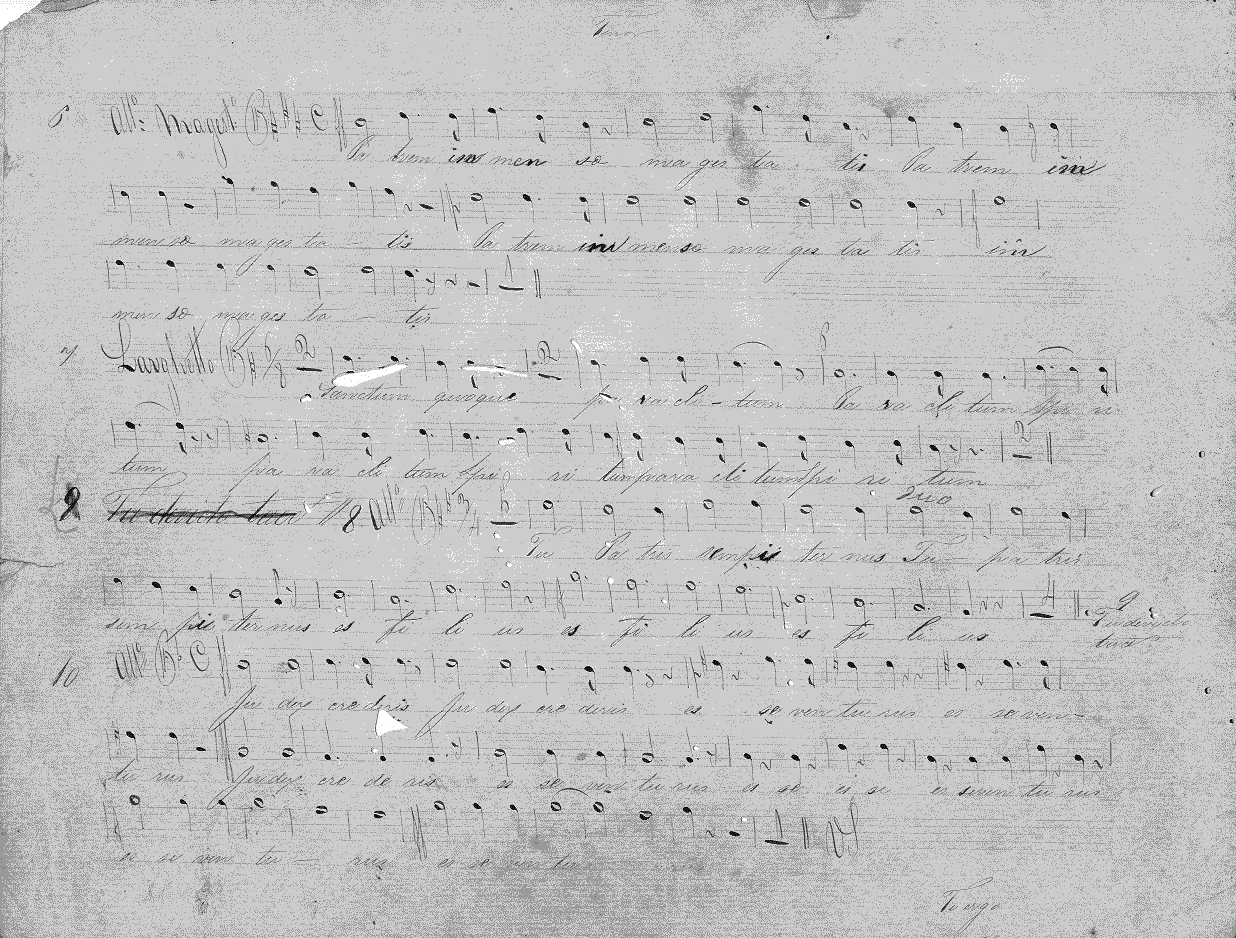 Tenor
6 All.º Magest.º C
Pa trem im men sæ ma ges ta tis Pa trem im
men sæ ma ges ta - tis Pa trem im men sæ ma ges ta tis im
men sæ ma ges ta - tis
7 Larghetto 2 2
Sanctum quoque pa racli - tum Pa ra cli tum Spi ri
tum pa ra cli tum Spi ri tum para cli tum Spi ri tum
2
8 All.º 3/4 6 Duo
Tu Pa tris sempi ter nus Tu pa tris
sem pi ter nus es Fi li us es Fi li us es Fi li us
4
9
10 All.º C
Ju dex crederis Ju dex cre deris es se ven tu rus es se ven -
tu rus Judex cre de ris es se ven tu rus es se es se es se ven tu rus
es se ven tu - rus es se ven tu rus
1 VS
Te ergo